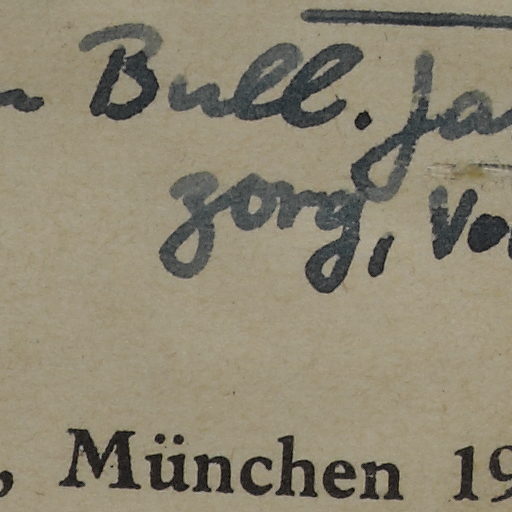 Bull. Ja
zorg, Vo
, München 19